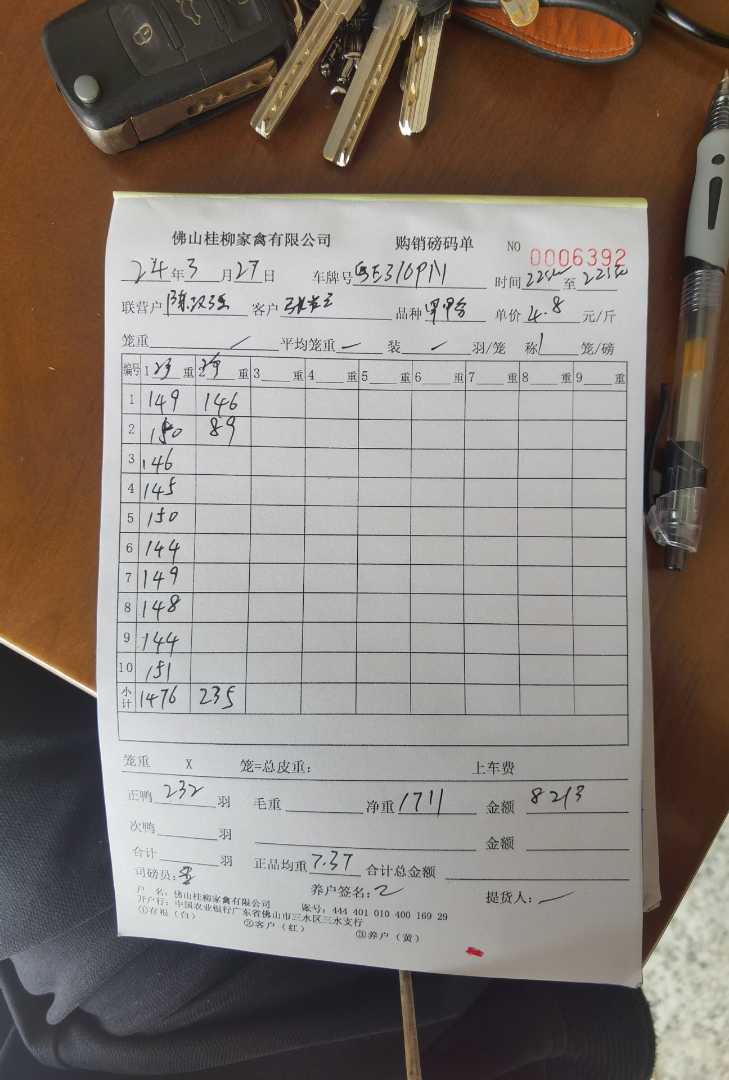 佛山桂柳家禽有限公司 购销磅码单 NO 0006392
24年3月27日 车牌号 时间 至
联营户 客户 品种 单价4.8元/斤
笼重 / 平均笼重 — 装 / 羽/笼 称1笼/磅
编号 1 重 2 重 3 重 4 重 5 重 6 重 7 重 8 重 9 重
1 149 146
2 150 89
3 146
4 145
5 150
6 144
7 149
8 148
9 144
10 151
小计 1476 235
笼重 X 笼=总皮重: 上车费
正鸭232羽 毛重 净重1711 金额8213
次鸭 羽 金额
合计 羽 正品均重7.37 合计总金额
司磅员: 养户签名: 提货人: —
户 名: 佛山桂柳家禽有限公司 账号: 444 401 010 400 169 29
开户行: 中国农业银行广东省佛山市三水区三水支行
①存根(白) ②客户(红) ③养户(黄)